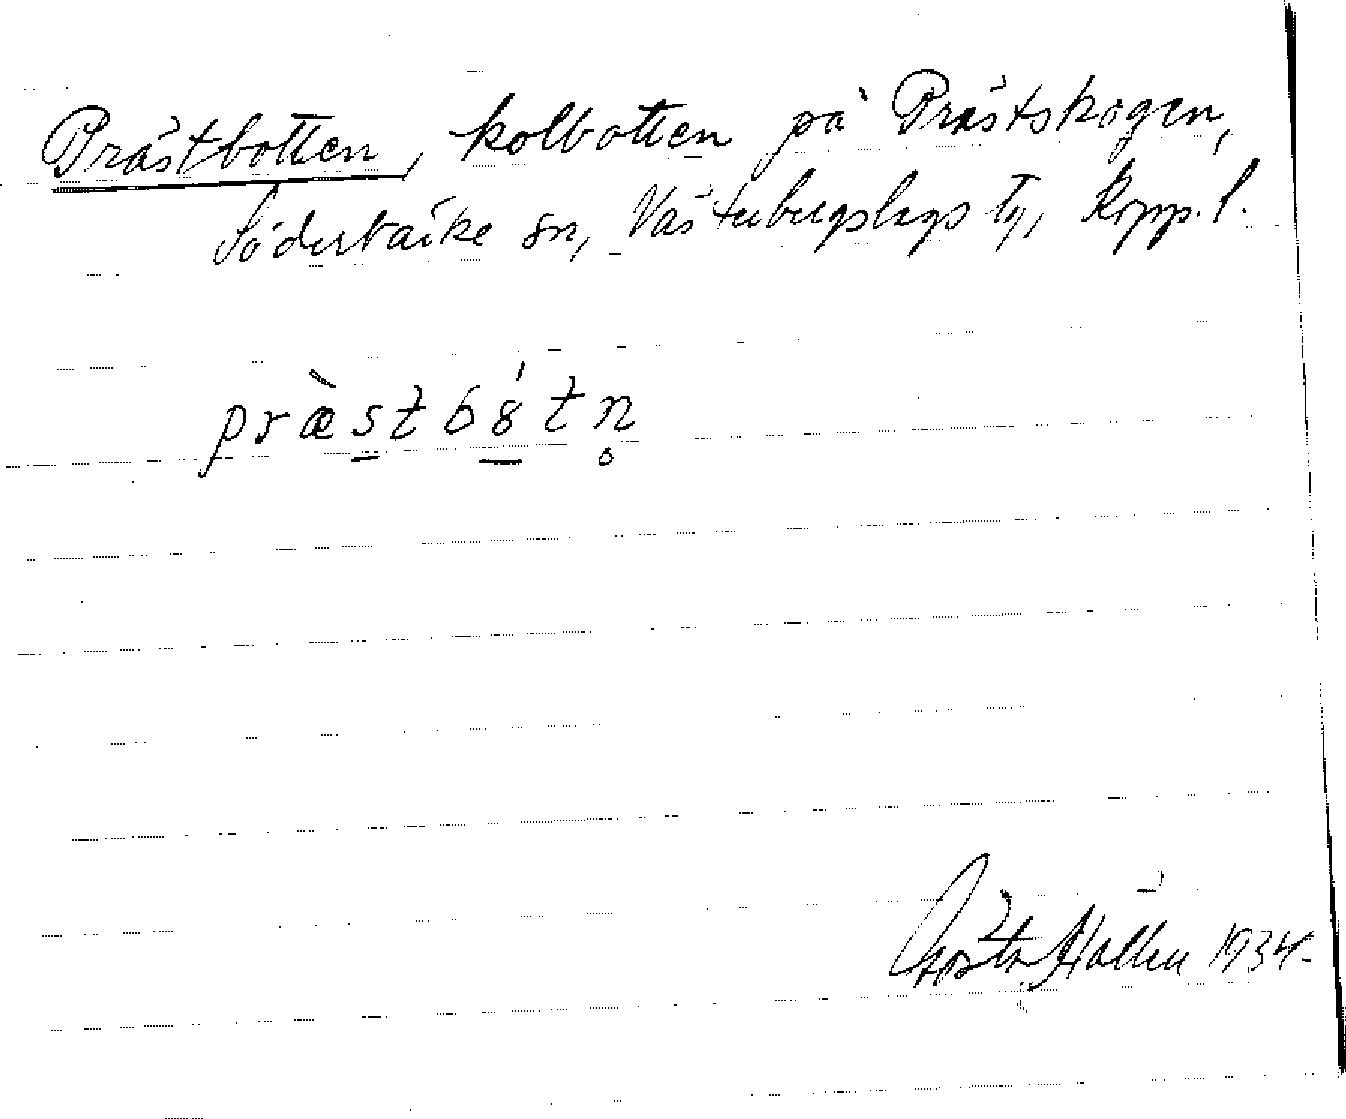 Prästbotten, kolbotten på Prästskogen,
Söderbärke sn, Västerbergslags tg, Kopp. l.
præ̀stb8́tn̥
Gösta Hallén 1934.